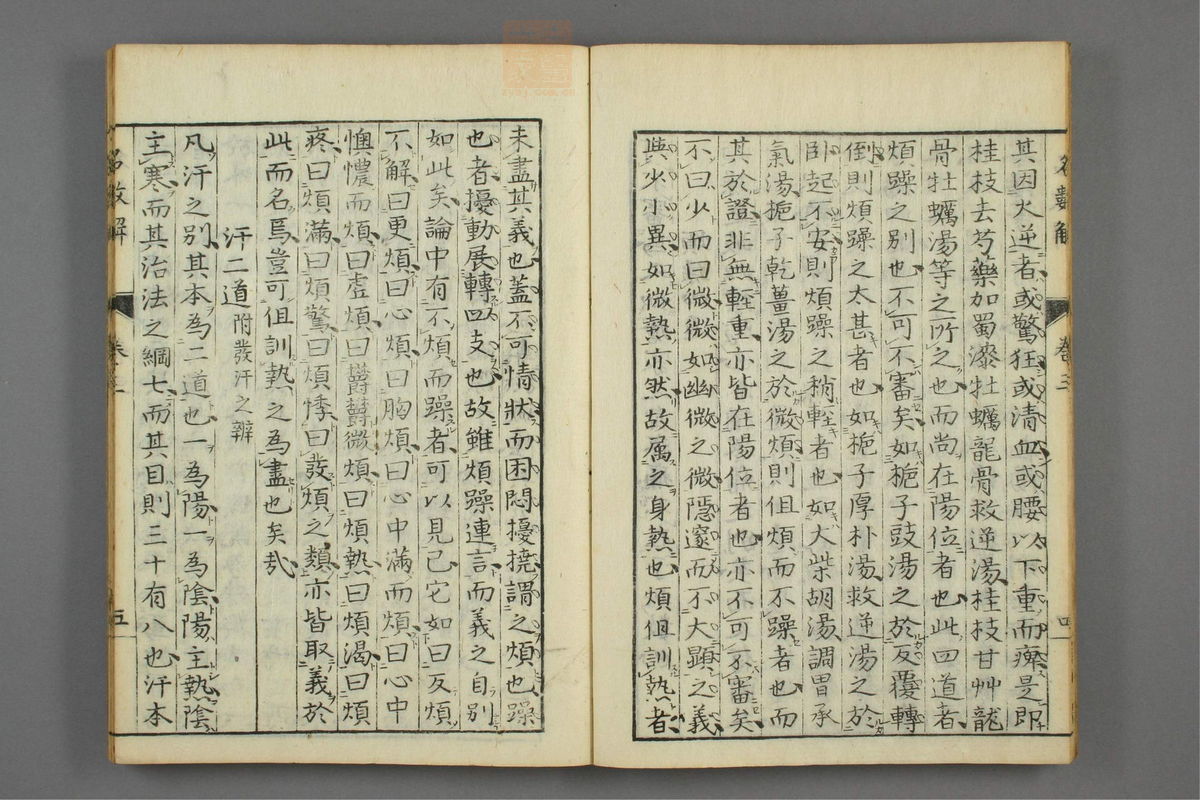 其因火逆者或驚狂或清血或腰以下重而痺是即
桂枝去芍藥加蜀漆牡蠣龍骨救逆湯桂枝甘艸龍
骨牡蠣湯等之所之也而尚在陽位者也此四道者
煩躁之別也不可不審矣如梔子豉湯之於反覆轉
倒則煩躁之太甚者也如梔子厚朴湯救逆湯之於
臥起不安則煩躁之稍輕者也如大柴胡湯調胃承
氣湯梔子乾薑湯之於微煩則但煩而不躁者也而
其於證非無輕重亦皆在陽位者也亦不可不審矣
不曰少而曰微微如幽微之微隱邃而不大顯之義
與少小異如微熱亦然故属之身熱也煩但訓熱者
名數解
卷三
四
未盡其義也蓋不可情狀而困悶擾撓謂之煩也躁
也者擾動展轉四支也故雖煩躁連言而義之自別
如此矣論中有不煩而躁者可以見已它如曰反煩
不解曰更煩曰心煩曰胸煩曰心中滿而煩曰心中
懊憹而煩曰虛煩曰欝欝微煩曰煩熱曰煩渴曰煩
疼曰煩滿曰煩驚曰煩悸曰發煩之類亦皆取義於
此而名焉豈可但訓熱之為盡也矣哉
汗二道附發汗之辨
凡汗之別其本為二道也一為陽一為陰陽主熱陰
主寒而其治法之綱七而其目則三十有八也汗本
名數解
卷三
五